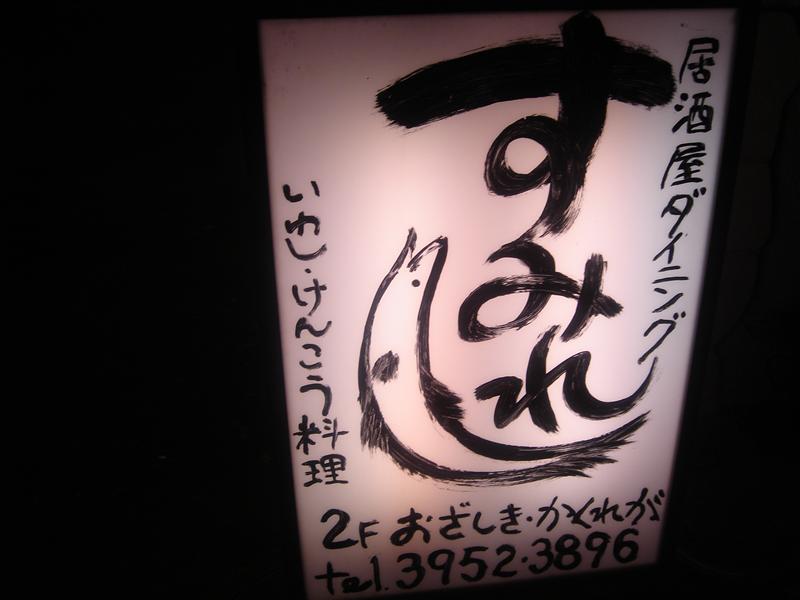 居酒屋ダイニング
すみれ
いわし・けんこう料理
2F おざしき・かくれが
tel.3952・3896